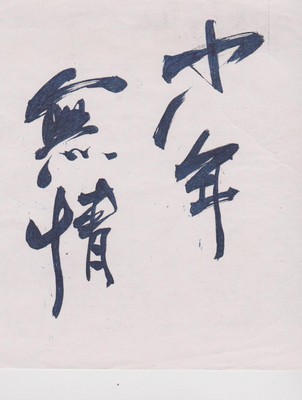 少年
無情